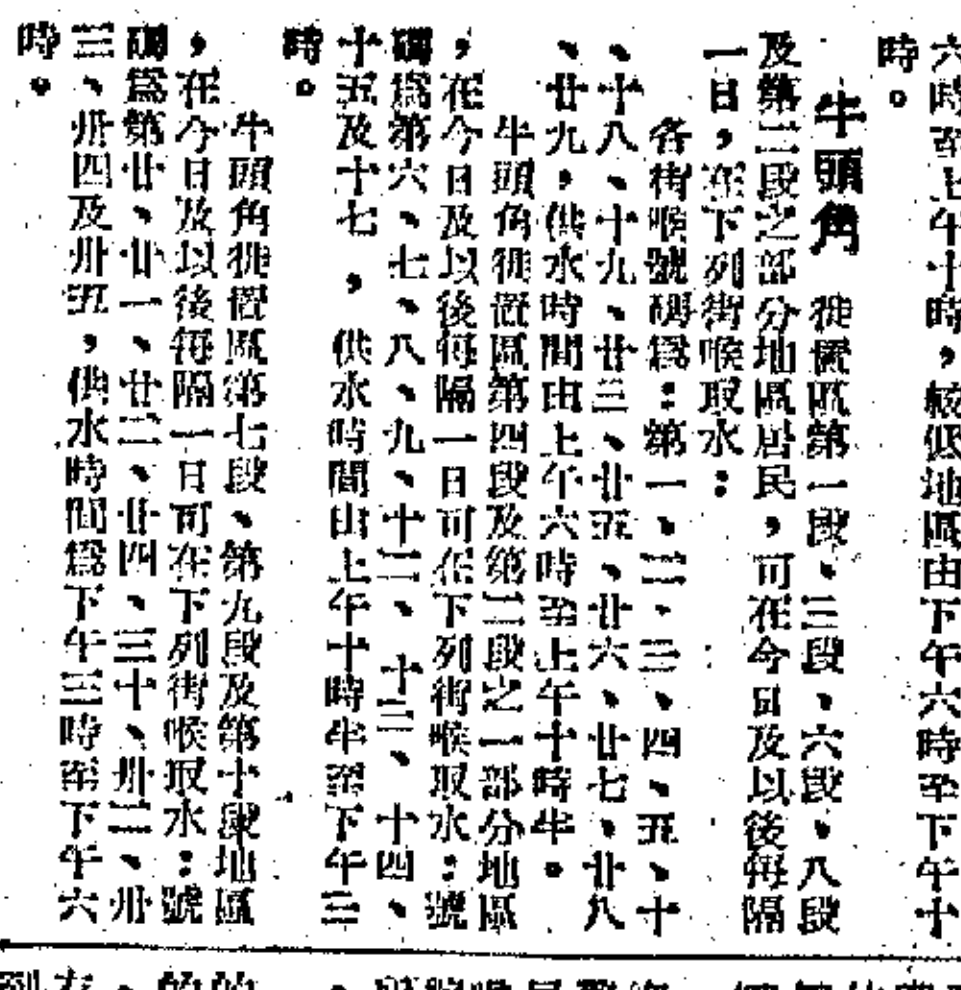 六時至上午十時，較低地區由下午六時至下午十
時。
牛頭角　徙置區第一段、三段、六段、八段
及第二段之部分地區居民，可在今日及以後每隔
一日，在下列街喉取水：
各街喉號碼爲：第一、二、三、四、五、十
、十八、十九、廿三、廿五、廿六、廿七、廿八
、廿九，供水時間由上午六時至上午十時半。
牛頭角徙置區第四段及第二段之一部分地區
，在今日及以後每隔一日可在下列街喉取水：號
碼爲第六、七、八、九、十二、十三、十四、
十五及十七，供水時間由上午十時半至下午三
時。
牛頭角徙置區第七段、第九段及第十段地區
，在今日及以後每隔一日可在下列街喉取水：號
碼爲第廿、廿一、廿二、廿四、三十、卅二、卅
三、卅四及卅五，供水時間爲下午三時至下午六
時。